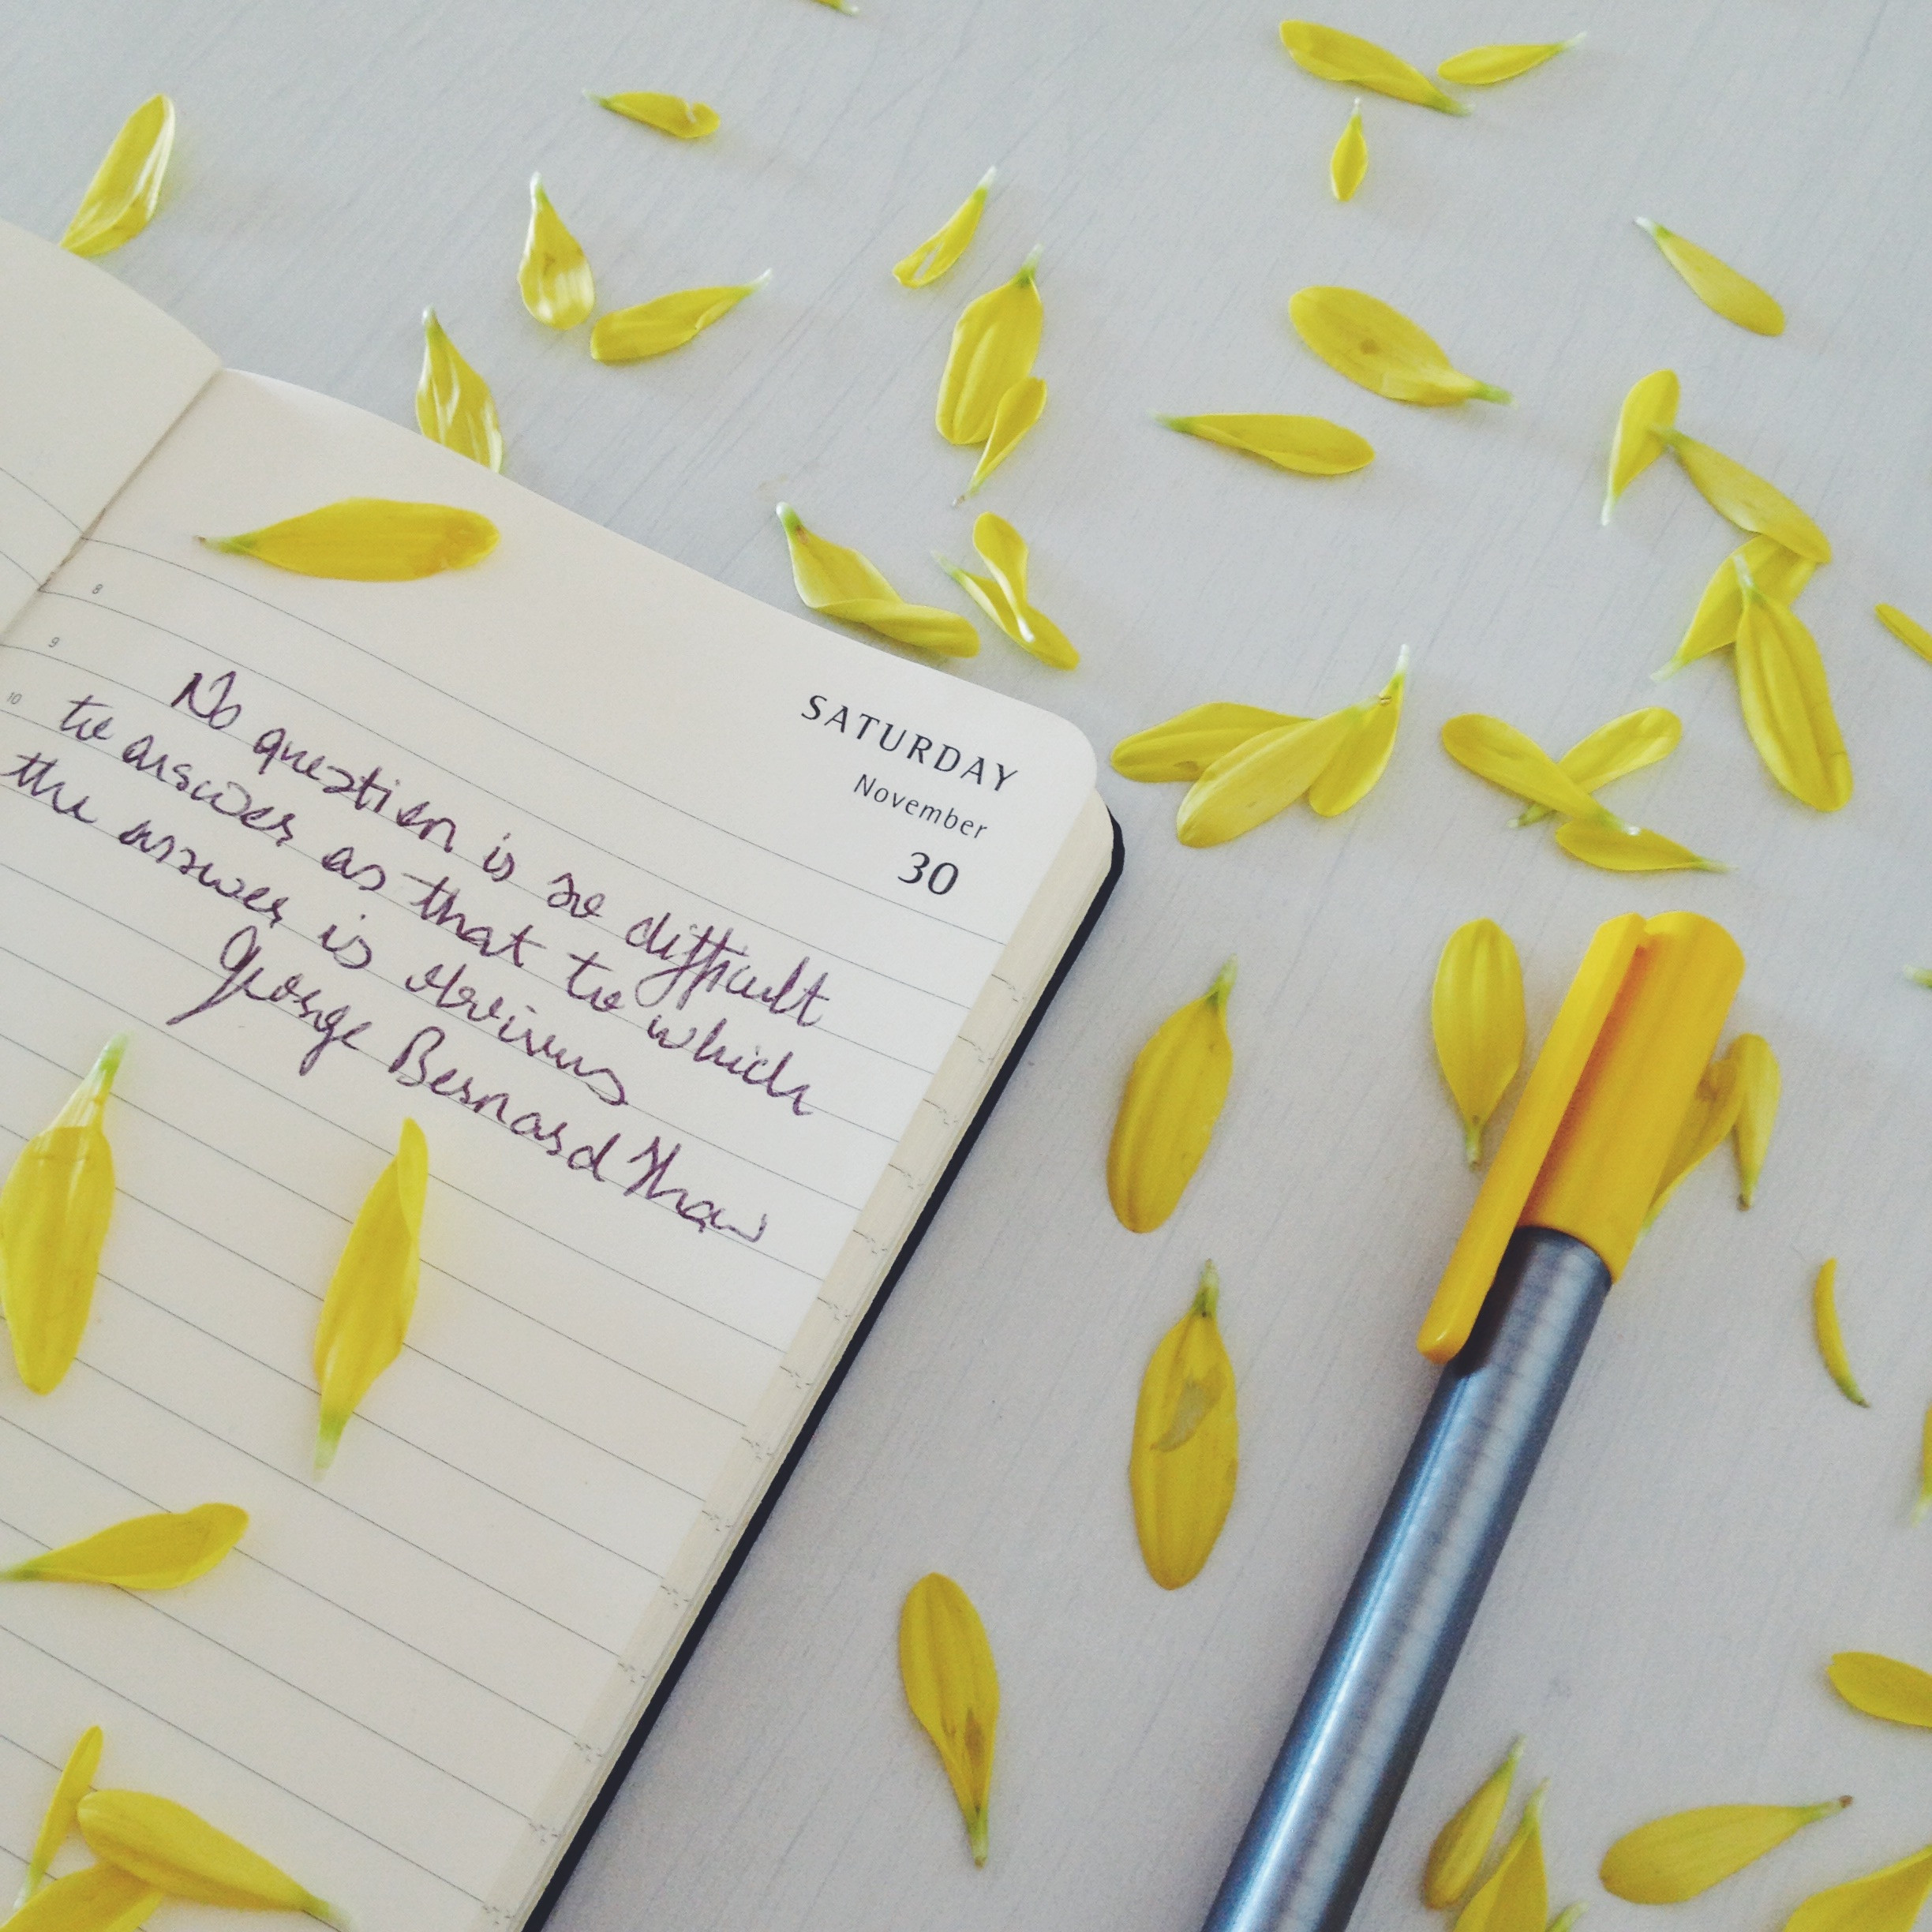 SATURDAY
November
30
8
9
10
No question is so difficult
to answer as that to which
the answer is obvious
George Bernard Shaw